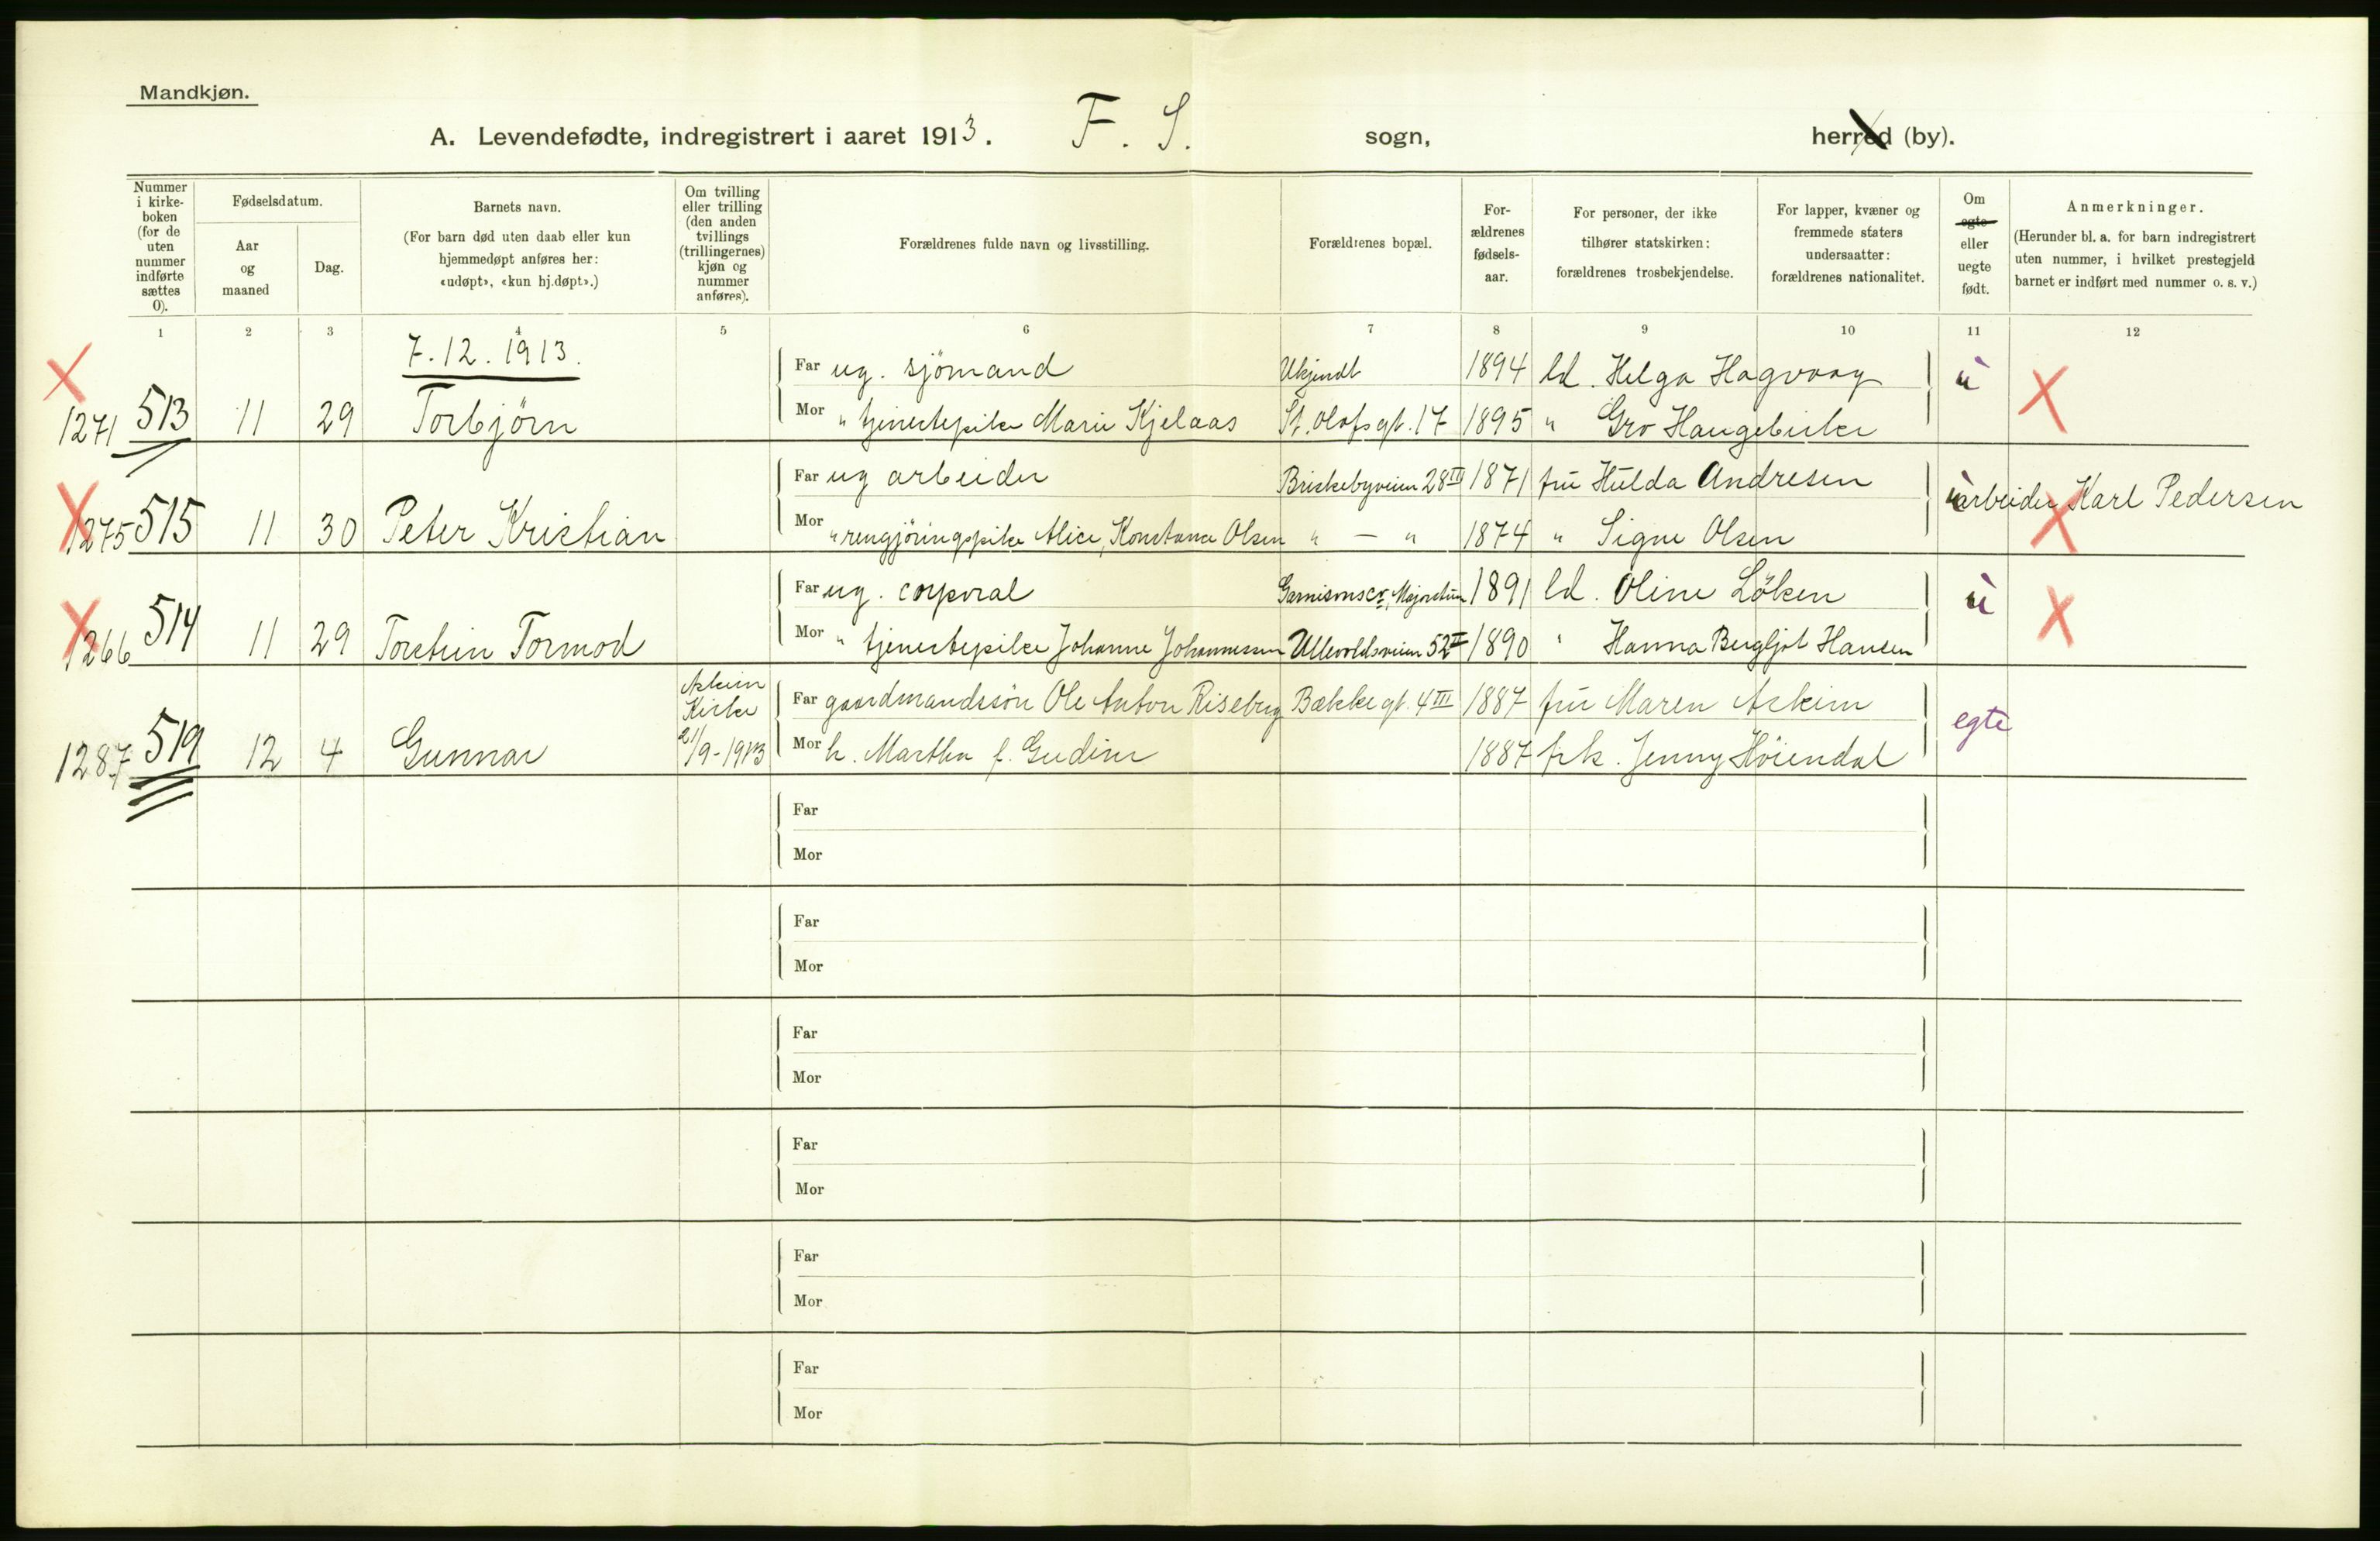 Mandkjøn.
A. Levendefødte, indregistrert i aaret 1913. F. S. sogn, herred (by).
Nummer i kirke-boken (for de uten nummer indførte sættes 0).
Fødselsdatum.
Aar og maaned
Dag.
Barnets navn.
(For barn død uten daab eller kun hjemmedøpt anføres her: «udøpt», «kun hj.døpt».)
Om tvilling eller trilling (den anden tvillings (trillingernes) kjøn og nummer anføres).
Forældrenes fulde navn og livsstilling.
Forældrenes bopæl.
For-ældrenes fødsels-aar.
For personer, der ikke tilhører statskirken: forældrenes trosbekjendelse.
For lapper, kvæner og fremmede staters undersaatter: forældrenes nationalitet.
Om egte eller uegte født.
Anmerkninger.
(Herunder bl. a. for barn indregistrert uten nummer, i hvilket prestegjeld barnet er indført med nummer o. s. v.)
1 2 3 4 5 6 7 8 9 10 11 12
7.12.1913.
Far ug. sjömand Ukjendt 1894 ld. Helga Hagvaag ù
1271 513 11 29 Torbjörn Mor " tjenestepike Marie Kjelaas St. Olafs gt. 17 1895 " Gro Haugebirke
Far ug arbeider Briskebyveien 28 III 1871 fru Hulda Andresen ù arbeider Karl Pedersen
1275 515 11 30 Peter Kristian Mor " rengjöringspike Alice, Konstance Olsen " — " 1874 " Signe Olsen
Far ug. corporal Garnisonsc, Majorstuen 1891 ld. Oline Löken ù
1266 514 11 29 Torstein Tormod Mor " tjenestepike Johanne Johannessen Ullevoldsveien 52 II 1890 " Hanna Bergljot Hansen
Askim Kirke
Far gaardmandssön Ole Anton Riseberg Bækkegt. 4 III 1887 fru Maren Askim egte
1287 519 12 4 Gunnar 21/9-1913 Mor h. Martha f. Gudim 1887 frk. Jenny Höiendal
Far
Mor
Far
Mor
Far
Mor
Far
Mor
Far
Mor
Far
Mor